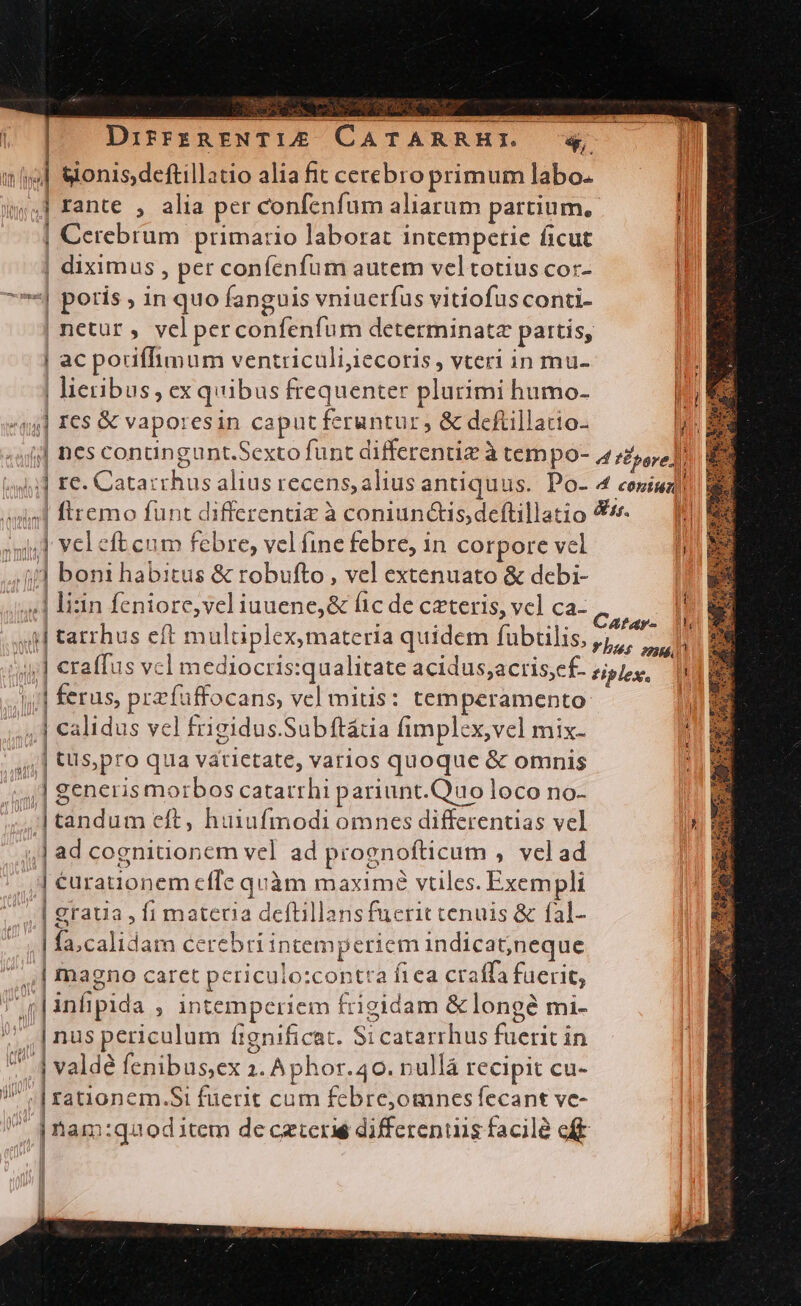 DIFFERENTIÆ CATARRHI. 4,
tionis,deſtillatio alia fit cerebro primum labo-
rante , alia per conſenſum aliarum partium.
Cerebrum primario laborat intemperie ſicut
diximus , per conſenſum autem vel totius cor-
poris , in quo ſanguis vniuerſus vitioſus conti-
netur , vel per conſenſum determinatæ partis,
ac potiſſimum ventriculi,iecoris , vteri in mu-
lieribus , ex quibus frequenter plurimi humo-
res & vapores in caput feruntur , & deſtillatio-
nes contingunt.Sexto ſunt differentiæ à tempo-
A tēpore.
re. Catarrhus alius recens,alius antiquus. Po-
A coniun
ſtremo ſunt differentiæ à coniunctis,deſtillatio
ctis.
vel eſt cum febre, vel ſine febre, in corpore vel
boni habitus & robuſto , vel extenuato & debi-
li:in ſeniore,vel iuuene,& ſic de cæteris, vel ca-
Catar-
tarrhus eſt multiplex,materia quidem ſubtilis,
rhus mul
craſſus vel mediocris:qualitate acidus,acris,ef-
tiplex.
ferus, præſuffocans, vel mitis : temperamento
calidus vel frigidus.Subſtātia ſimplex,vel mix-
tus,pro qua varietate, varios quoque & omnis
generis morbos catarrhi pariunt.Quo loco no-
tandum eſt , huiuſmodi omnes differentias vel
ad cognitionem vel ad prognoſticum , vel ad
curationem eſſe quàm maximè vtiles. Exempli
gratia , ſi materia deſtillans fuerit tenuis & ſal-
ſa,calidam cerebri intemperiem indicat,neque
magno caret periculo:contra ſi ea craſſa fuerit,
inſipida , intemperiem frigidam & longè mi-
nus periculum ſignificat. Si catarrhus fuerit in
valdè ſenibus,ex 2. Aphor.40. nullá recipit cu-
rationem.Si fuerit cum febre,omnes ſecant ve-
nam:quod item de cæteris differentiis facilè eſt